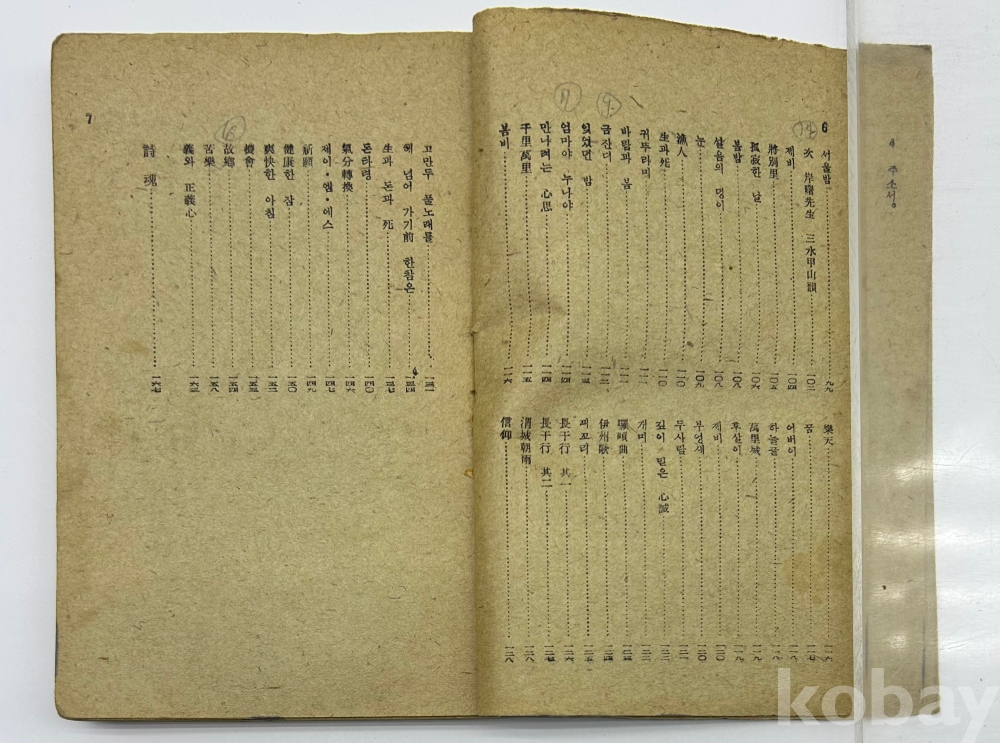 4 주소성
6
서울밤 九九
次 岸曙先生 三水甲山韻 一〇三
제비 一〇四
將別里 一〇五
孤寂한 날 一〇六
봄밤 一〇八
설음의 덩이 一〇八
눈 一〇九
漁人 一一〇
生과 死 一一〇
귀뚜라미
바람과 봄
금잔디 一一二
잊었면 밤 一一三
엄마야 누나야 一一四
만나려는 心思 一一四
千里萬里 一一五
봄비 一一六
樂天 一一六
꿈 一一七
어버이 一一八
하늘끝 一一八
萬里城 一一九
후살이 一一九
제비 一二〇
부엉새 一二〇
무사람 一二一
깊이 믿은 心誠 一二二
개미
囉嗊曲 一二三
伊州歌 一二四
꾀꼬리 一二五
長干行 其一 一二六
長干行 其二 一二七
渭城朝雨 一二八
信仰 一二八
7
고만두 풀노래를 一三一
해 넘어 가기前 한참은 一三四
生과 돈과 死 一三七
돈타령 一四〇
氣分轉換 一四六
제이·엠·에스 一四七
祈願 一四九
健康한 잠 一五〇
爽快한 아침 一五二
機會 一五三
故鄕 一五四
苦樂 一五八
義와 正義心 一六三
詩魂 一六七
kobay